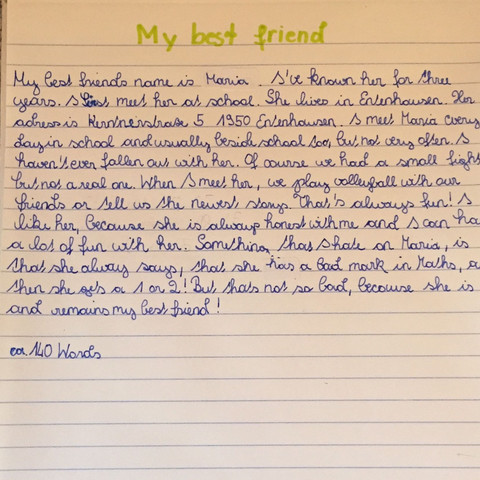 My best friend
My best friends name is Maria. I've known her for three
years. I first meet her at school. She lives in Entenhausen. Her
adress is Kerntnerstrase 5 1950 Entenhausen. I meet Maria every
day in school and usually beside school too, but not very often. I
haven't ever fallen out with her. Of course we had a small fight
but not a real one. When I meet her, we play volleyball with our
friends or tell us the newest story. That's always fun! I
like her, because she is always honest with me and I can ha
a lot of fun with her. Something, thas I hate on Maria, is
that she always says, that she has a bad mark in Maths, a
then she gets a 1 or 2! But thats not so bad, because she is
and remains my best friend!
ca. 140 Words